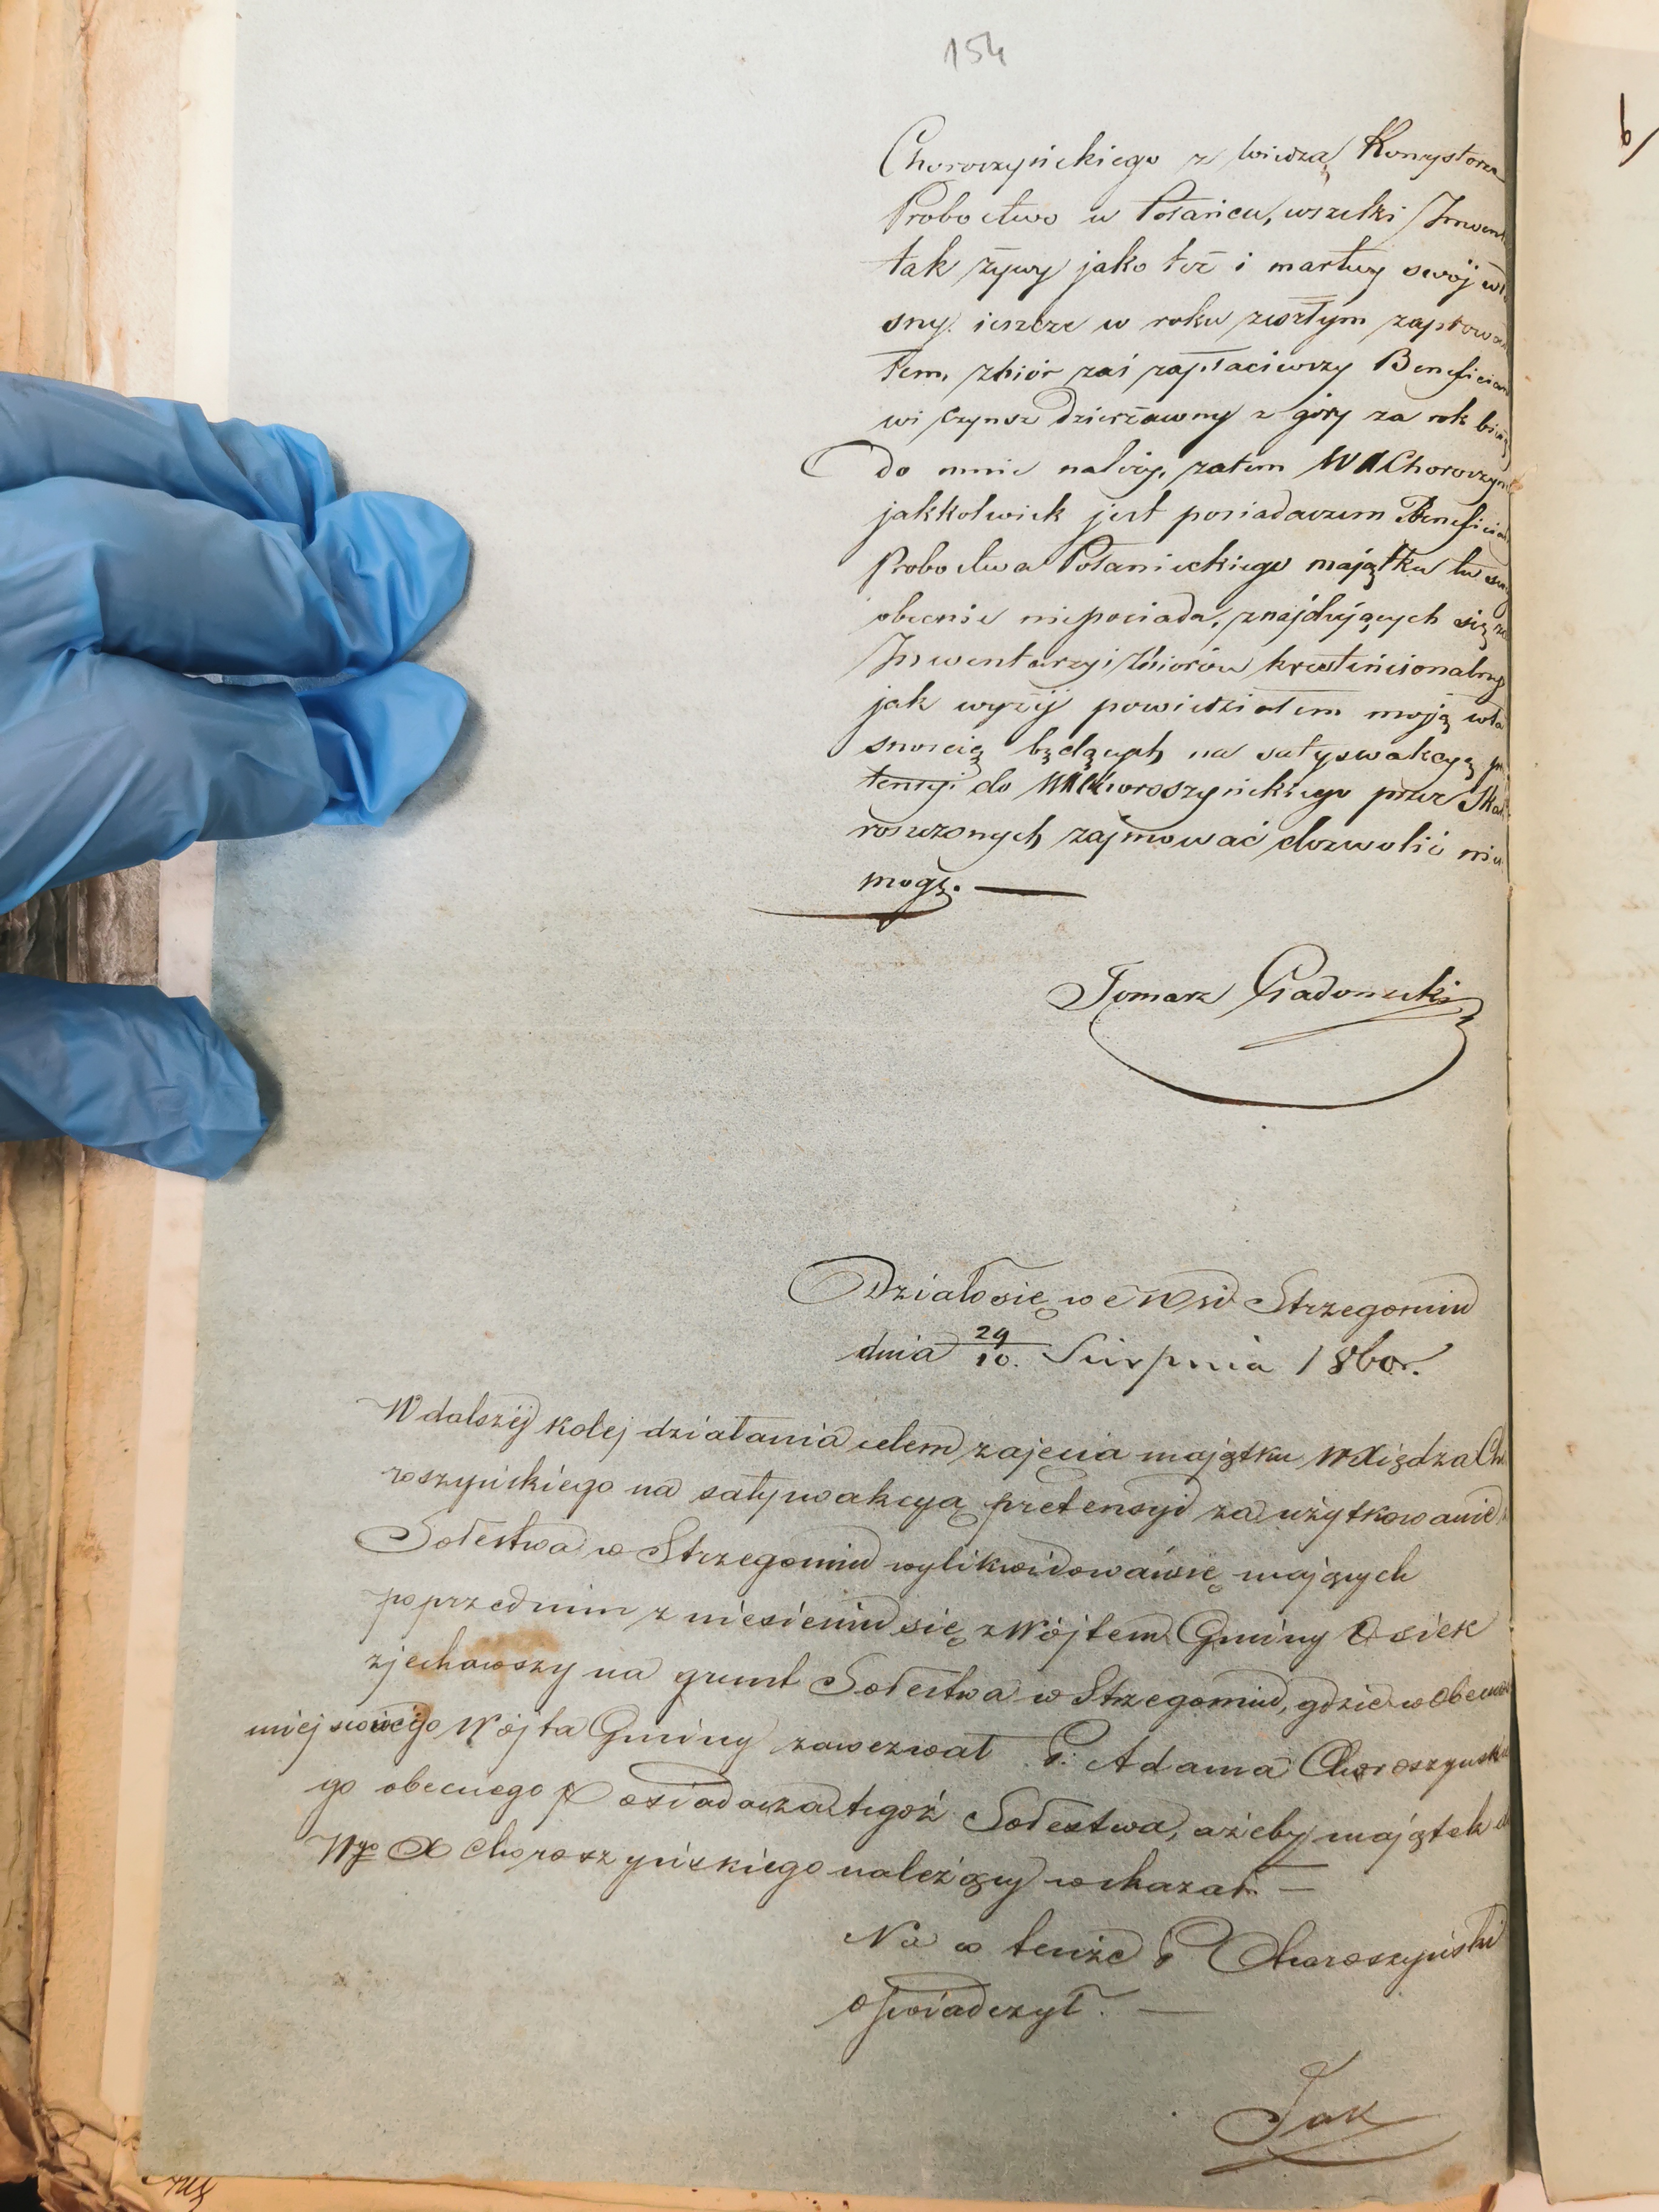 154
Choroszyńskiego z wiedzą Konsystorza
Probostwo w Połańcu, wszelki Inwent
tak żywy jako też i martwy swój wła
sny. ieszcze w roku zeszłym zaprowadzi
łem, zbiór zaś zapłaciwszy Beneficianto
wi czynsz dzierżawny z góry za rok bież
do mnie należy, zatem WX Choroszyń
jakkolwiek jest posiadaczem Beneficium
Probostwa Połanieckiego majątku tu
obecnie nieposiada, znajdujących się
Inwentarzy i Zbiorów krestencionalnych
jak wyżéj powiedziałem moją wła
snoscią będących na satyswakcyą pre
tensyi do WX Choroszyńskiego przez Skarb
roszczonych zajmować dozwolić nie
mogę. —
Tomasz Gadomski
Działo się we Wsi Strzegomiu
dnia 29/10. Sierpnia 1860r.
W dalszéj kolej działania celem zajecia majątku WXiędza Cho
roszyńskiego na satyswakcyą pretensyi za użytkowanie
Sołectwa w Strzegomiu wylikwidować się mających
poprzednim zniesieniu się z Wójtem Gminy Osiek
zjechawszy na grunt Sołestwa w Strzegomiu, gdzie w obecnos
miejscowego Wójta Gminy zawezwał P. Adama Choroszyńskie
go obecnego Posiadacza tegoż Sołestwa, ażeby majątek do
Wgo X Choroszyńskiego należący wskazał. —
Na co tenże P Choroszyński
oświadczył. —
Jak